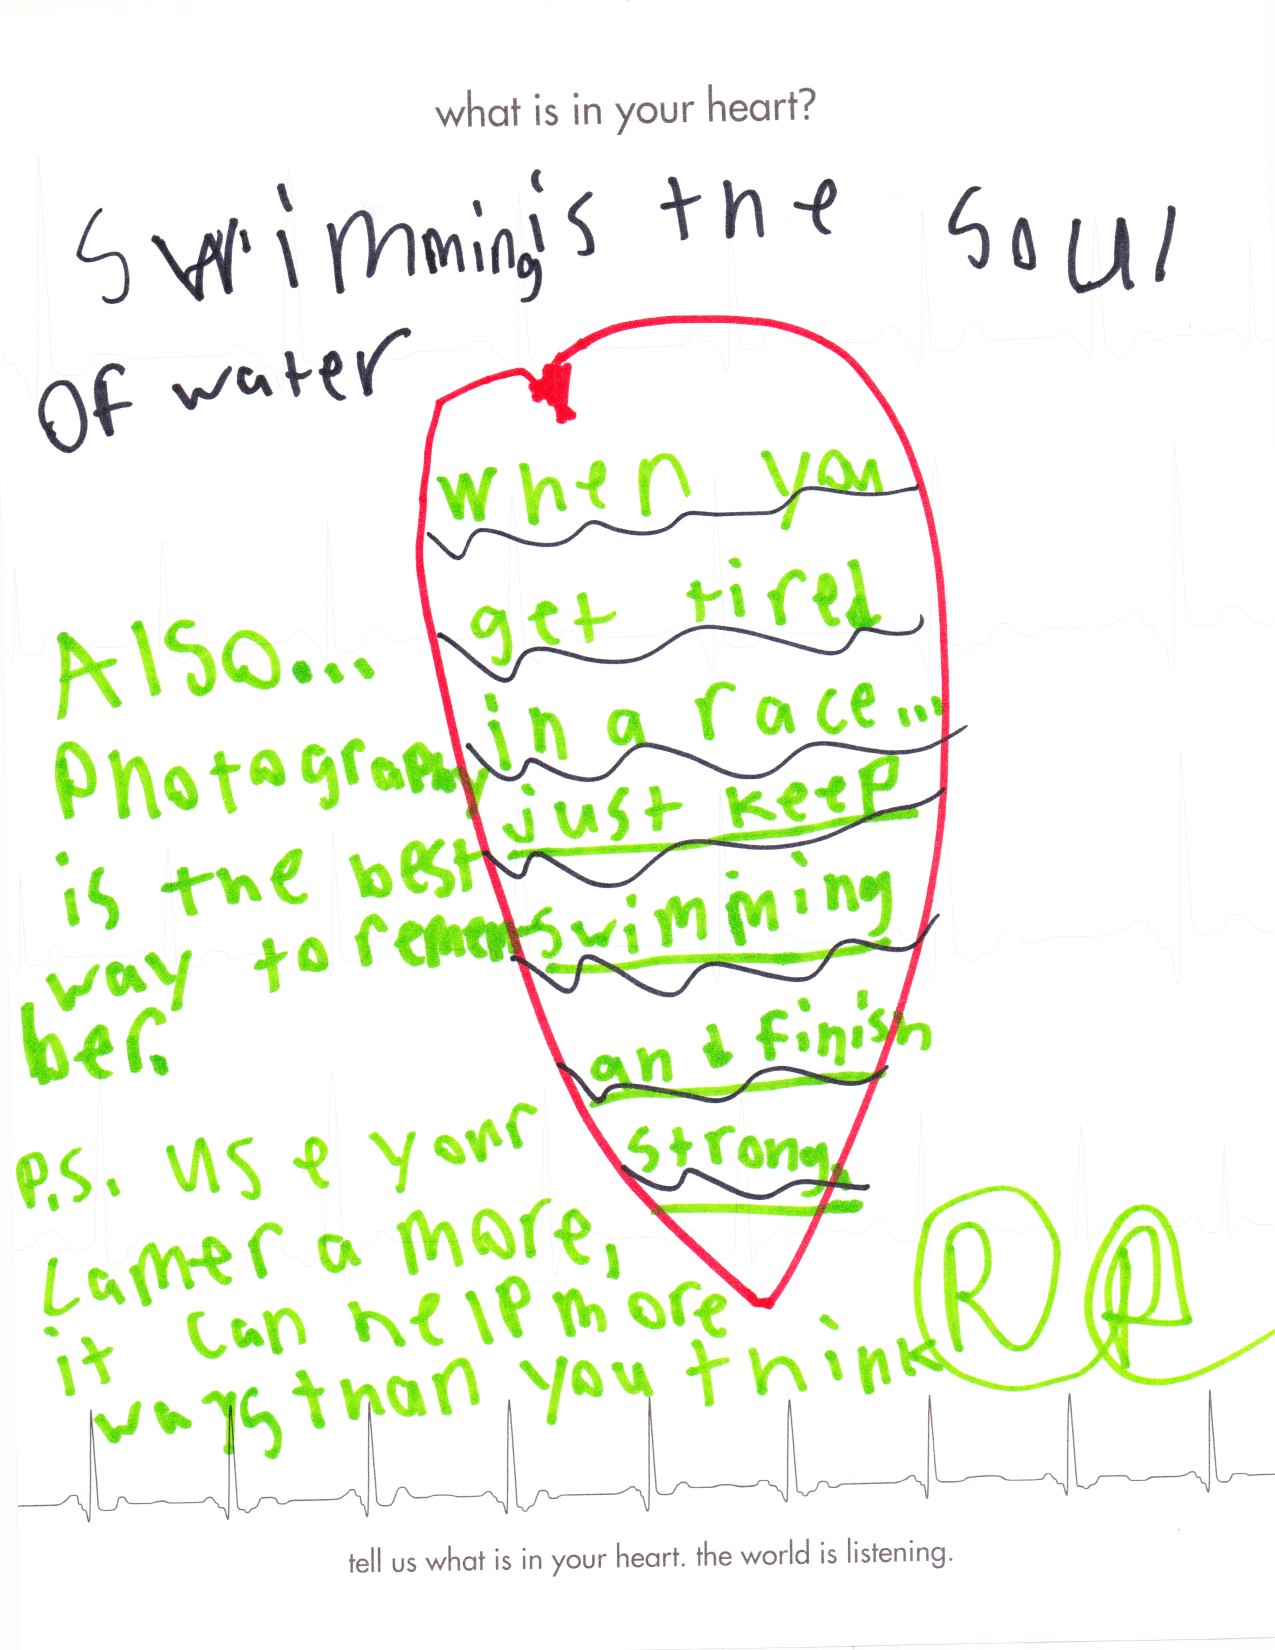 what is in your heart?
Swimming is the soul
Of water
when you
get tired
in a race...
just keep
swimming
and finish
strong.
Also...
Photography
is the best
way to remem
ber.
P.S. use your
camer a more,
it can help more
ways than you think
R P
tell us what is in your heart. the world is listening.